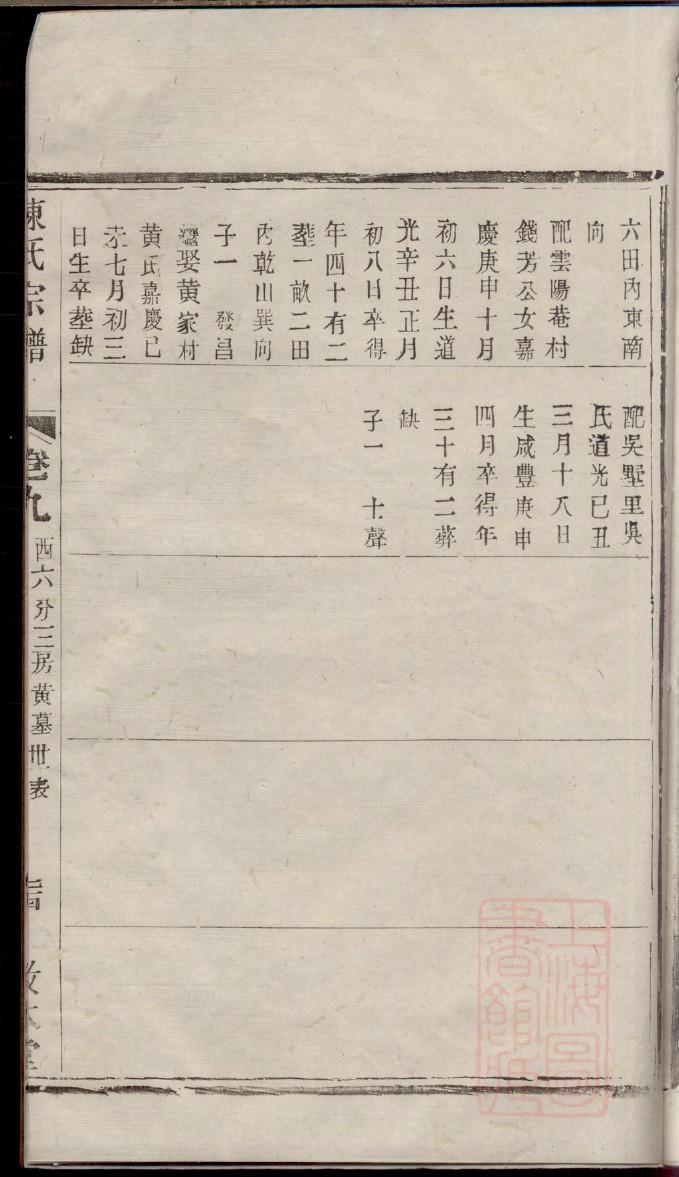 六田內東南
向
配雲陽菴村
錢芳公女嘉
慶庚申十月
初六日生道
光辛丑正月
初八日卒得
年四十有二
塟一畝二田
內乾山巽向
子一 發昌
繼娶黃家村
黃氏嘉慶己
未七月初三
日生卒塟缺
配吳墅里吳
氏道光己丑
三月十八日
生咸豐庚申
四月卒得年
三十有二葬
缺
子一 士聲
陳氏宗譜
卷九
西六分三房黃墓世表
敦本堂
上海圖書館藏